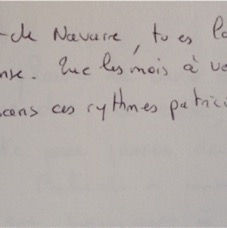 -de Navarre, tu es la
Que les mois à
ces rythmes patrici